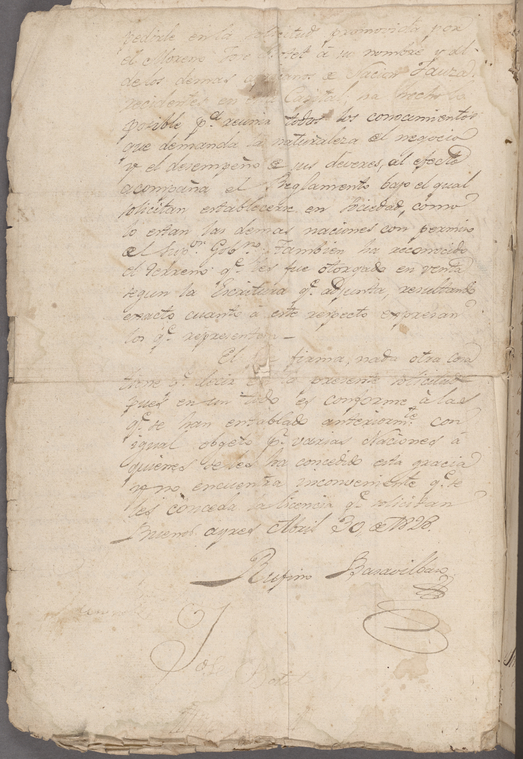 en la solicitud promovida por
el Moreno José á su nombre y al
de los demas de Nacion
recidentes en esta Capital, ha hecho lo
posible pª reunir todos los conocimientos
que demanda la naturaleza el negocio
y el desempeño de sus deveres, al efecto
acompaña el Reglamento bajo el qual
solicitan establecerse en Sociedad, como
lo estan las demas naciones con permiso
el Sup.ᵒʳ Gobⁿᵒ. Tambien ha reconocido
el terreno qᵉ les fue otorgado en venta
segun la Escritura qᵉ adjunta, resultando
exacto cuanto á este respecto expresan
los qᵉ representan.
El qe firma, nada otra cosa
tiene qᵉ decir en la presente solicitud
pues en un todo es conforme á las
qᵉ se han entablado anteriormᵗᵉ con
igual objeto pʳ varias Naciones á
quienes se les ha concedido esta gracia
y no encuentra inconveniente qᵉ se
les conceda la licencia qᵉ solicitan
Buenos ayres Abril 30 de 1828.
Rufino Basavilbaso